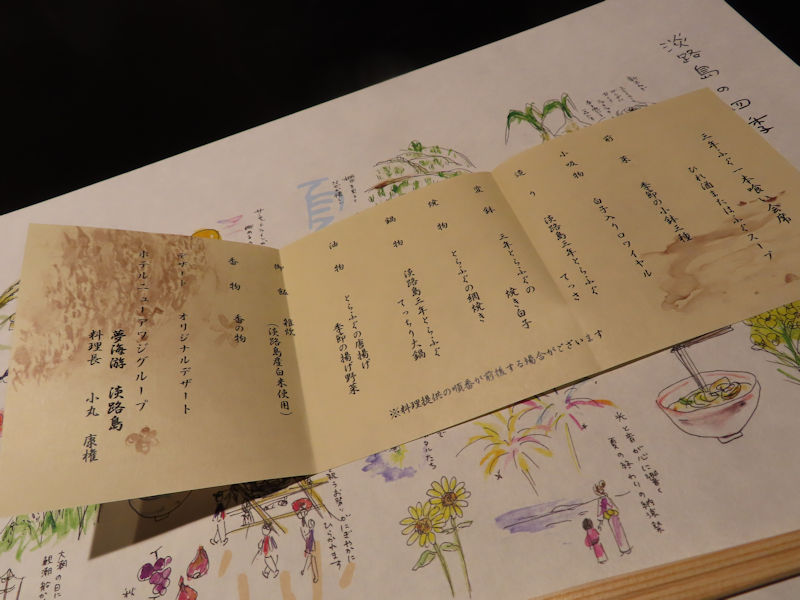 淡路島の四季
三年とらふぐ一本喰い会席
ひれ酒またはふぐスープ
前菜 季節の小鉢三種
小吸物 白子入りロワイヤル
造り 淡路島三年とらふぐ てっさ
温鉢 三年とらふぐの 焼き白子
焼物 とらふぐの網焼き
鍋物 淡路島三年とらふぐ
てっちり大鍋
油物 とらふぐの唐揚げ
季節の揚げ野菜
御飯 雑炊
(淡路島産白米使用)
香物 香の物
デザート オリジナルデザート
ホテルニューアワジグループ
夢海游 淡路島
料理長 小丸 康権
※料理提供の順番が前後する場合がございます
夏
光と音が心に響く
夏の終わりの納涼祭
ひらかれます
大潮の日に
秋